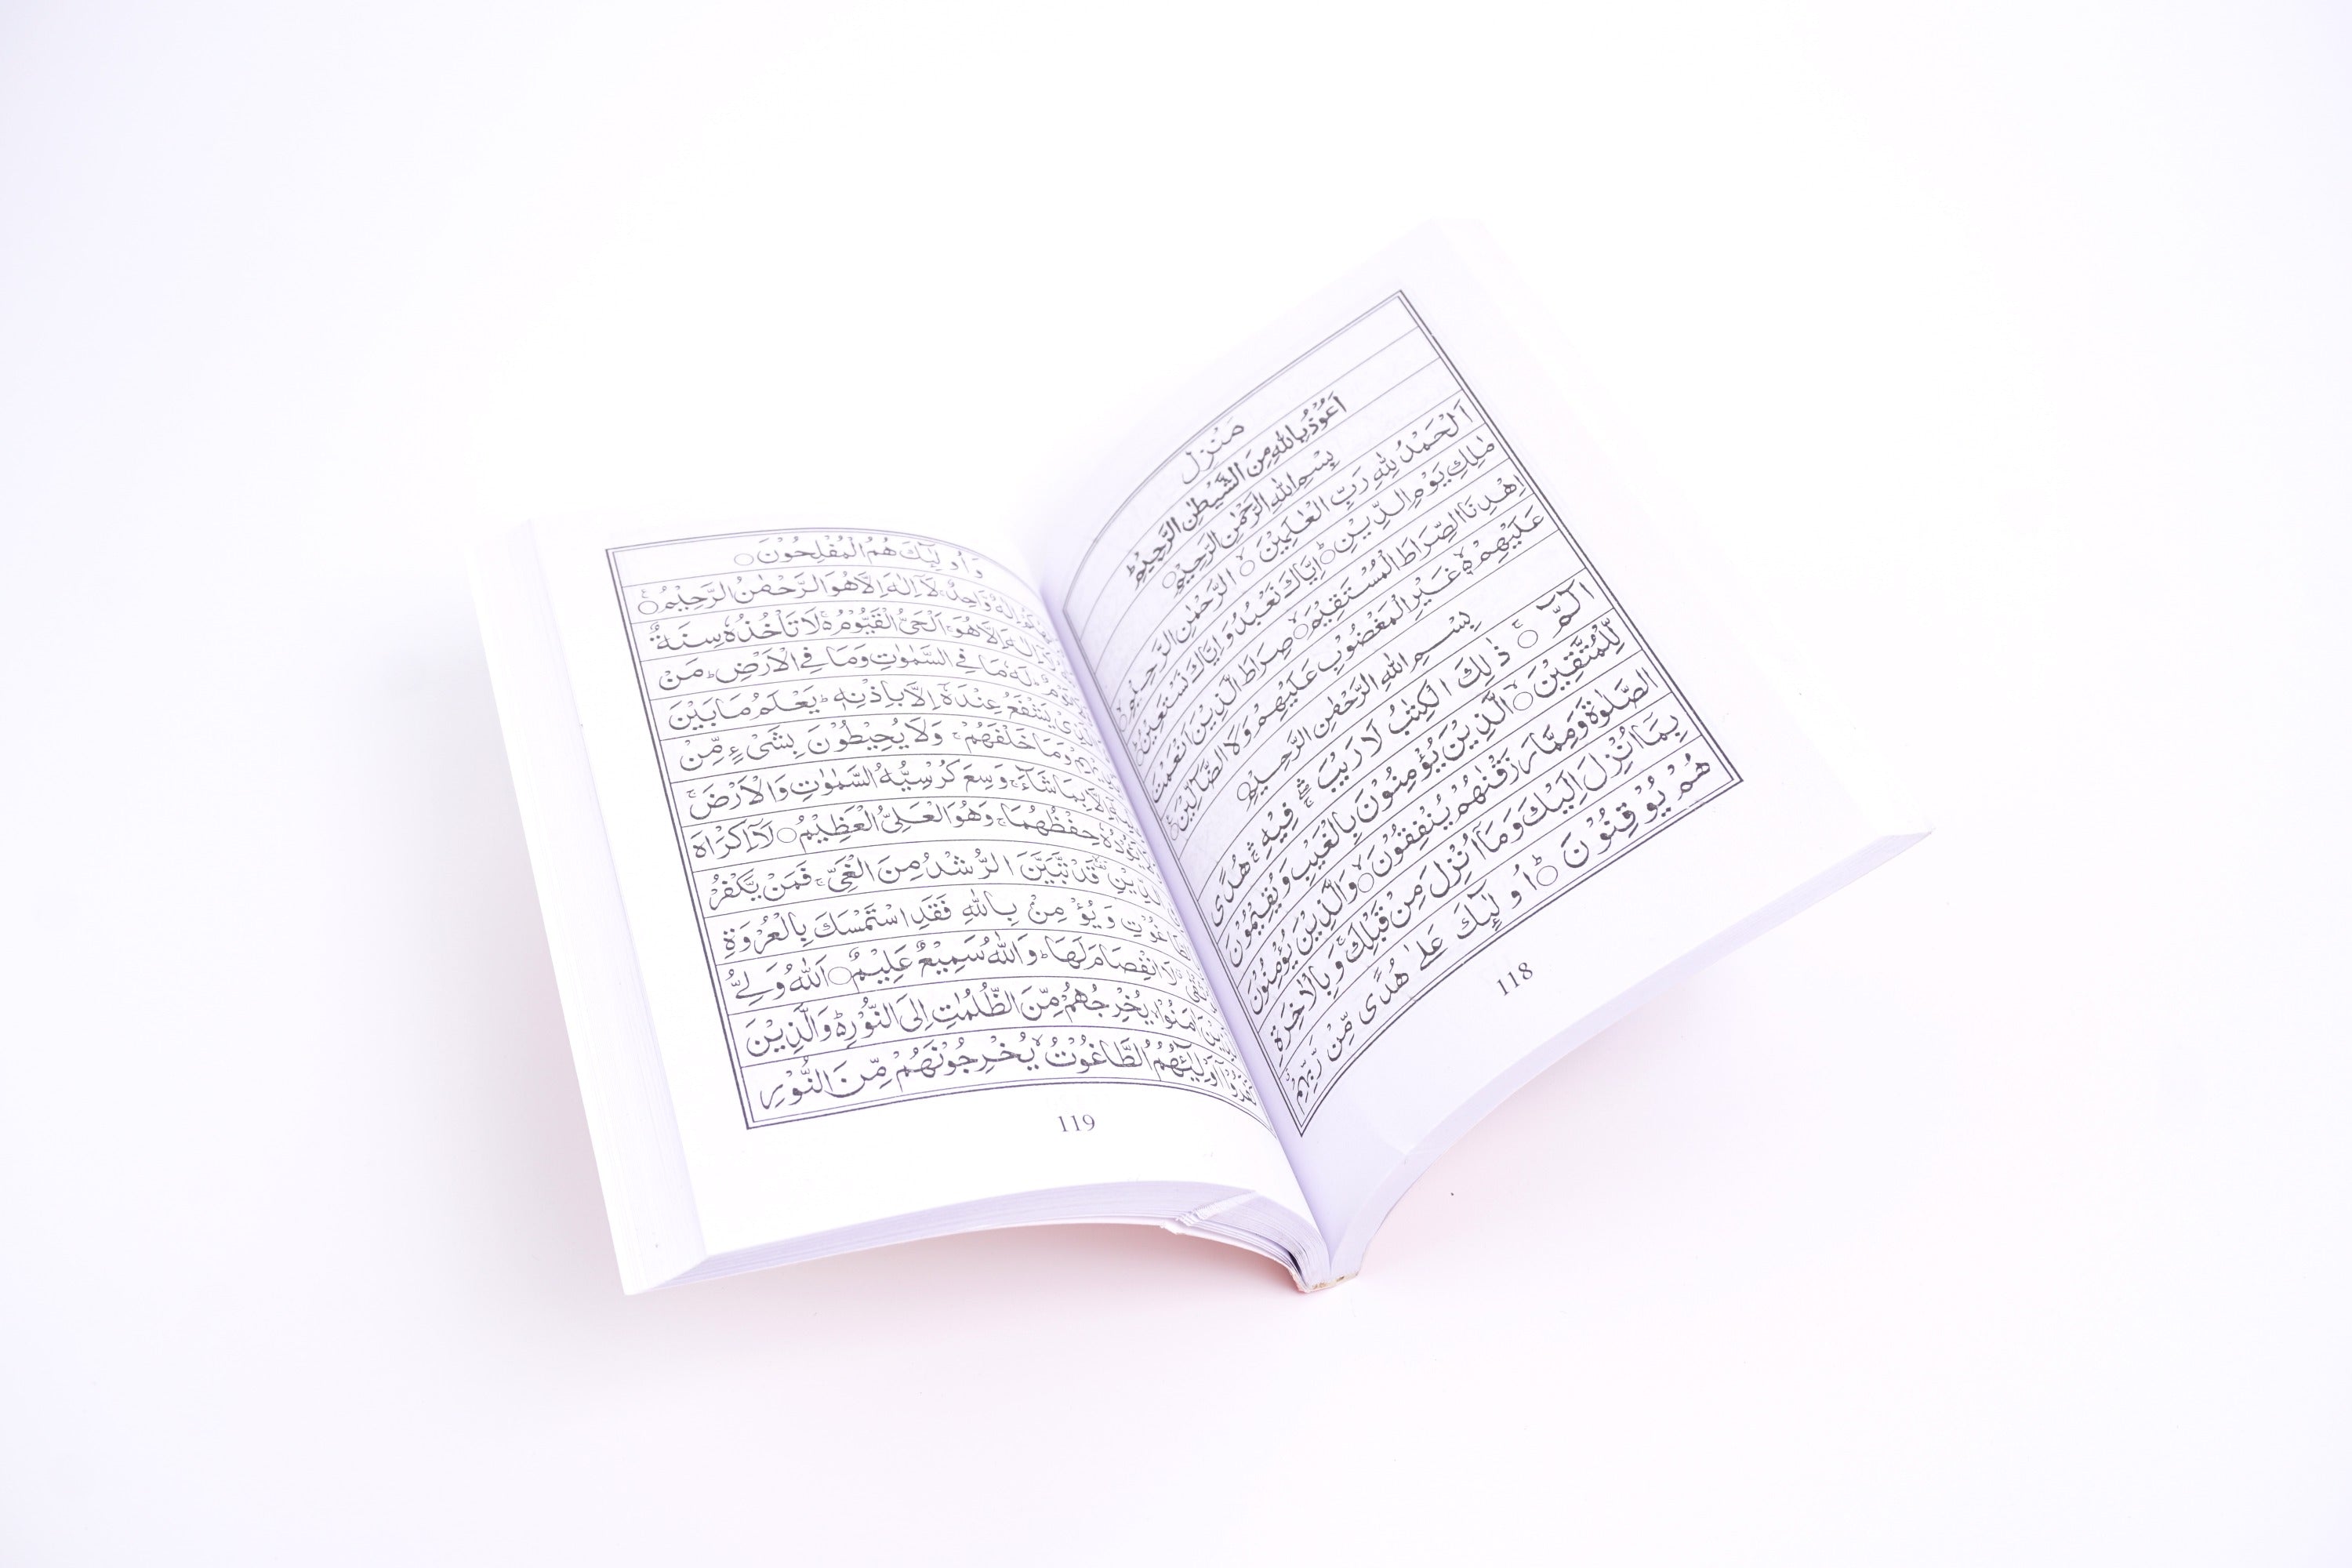 مَنْزِل
اَعُوْذُ بِاللّٰهِ مِنَ الشَّيْطٰنِ الرَّجِيْمِ ؕ
بِسْمِ اللّٰهِ الرَّحْمٰنِ الرَّحِيْمِ ○
اَلْحَمْدُ لِلّٰهِ رَبِّ الْعٰلَمِيْنَ ○ۙ الرَّحْمٰنِ الرَّحِيْمِ ○ۙ
مٰلِكِ يَوْمِ الدِّيْنِ ○ؕ اِيَّاكَ نَعْبُدُ وَاِيَّاكَ نَسْتَعِيْنُ ○ؕ
اِهْدِنَا الصِّرَاطَ الْمُسْتَقِيْمَ ○ۙ صِرَاطَ الَّذِيْنَ اَنْعَمْتَ
عَلَيْهِمْ ۙ۬ غَيْرِ الْمَغْضُوْبِ عَلَيْهِمْ وَلَا الضَّآلِّيْنَ ○
بِسْمِ اللّٰهِ الرَّحْمٰنِ الرَّحِيْمِ ○
الٓمّٓ ○ۚ ذٰلِكَ الْكِتٰبُ لَا رَيْبَ ۛۚ فِيْهِ ۛۚ هُدًى
لِّلْمُتَّقِيْنَ ○ۙ الَّذِيْنَ يُؤْمِنُوْنَ بِالْغَيْبِ وَيُقِيْمُوْنَ
الصَّلٰوةَ وَمِمَّا رَزَقْنٰهُمْ يُنْفِقُوْنَ ○ۙ وَالَّذِيْنَ يُؤْمِنُوْنَ
بِمَا اُنْزِلَ اِلَيْكَ وَمَا اُنْزِلَ مِنْ قَبْلِكَ ۚ وَبِالْاٰخِرَةِ
هُمْ يُوْقِنُوْنَ ○ؕ اُولٰٓئِكَ عَلٰى هُدًى مِّنْ رَّبِّهِمْ
118
وَاُولٰٓئِكَ هُمُ الْمُفْلِحُوْنَ ○
اِلٰهٌ وَّاحِدٌ ۚ لَآ اِلٰهَ اِلَّا هُوَ الرَّحْمٰنُ الرَّحِيْمُ ○ۚ
اِلٰهَ اِلَّا هُوَ ۚ اَلْحَىُّ الْقَيُّوْمُ ۚ لَا تَاْخُذُهٗ سِنَةٌ
نَوْمٌ ؕ لَهٗ مَا فِى السَّمٰوٰتِ وَمَا فِى الْاَرْضِ ؕ مَنْ
يَشْفَعُ عِنْدَهٗٓ اِلَّا بِاِذْنِهٖ ؕ يَعْلَمُ مَا بَيْنَ
وَمَا خَلْفَهُمْ ۚ وَلَا يُحِيْطُوْنَ بِشَىْءٍ مِّنْ
اِلَّا بِمَا شَآءَ ۚ وَسِعَ كُرْسِيُّهُ السَّمٰوٰتِ وَالْاَرْضَ ۚ
حِفْظُهُمَا ۚ وَهُوَ الْعَلِىُّ الْعَظِيْمُ ○ لَآ اِكْرَاهَ
الدِّيْنِ ۙ قَدْ تَّبَيَّنَ الرُّشْدُ مِنَ الْغَىِّ ۚ فَمَنْ يَّكْفُرْ
وَيُؤْمِنْ بِاللّٰهِ فَقَدِ اسْتَمْسَكَ بِالْعُرْوَةِ
لَا انْفِصَامَ لَهَا ؕ وَاللّٰهُ سَمِيْعٌ عَلِيْمٌ ○ اَللّٰهُ وَلِىُّ
اٰمَنُوْا يُخْرِجُهُمْ مِّنَ الظُّلُمٰتِ اِلَى النُّوْرِ ؕ وَالَّذِيْنَ
اَوْلِيٰٓئُهُمُ الطَّاغُوْتُ ۙ يُخْرِجُوْنَهُمْ مِّنَ النُّوْرِ
119